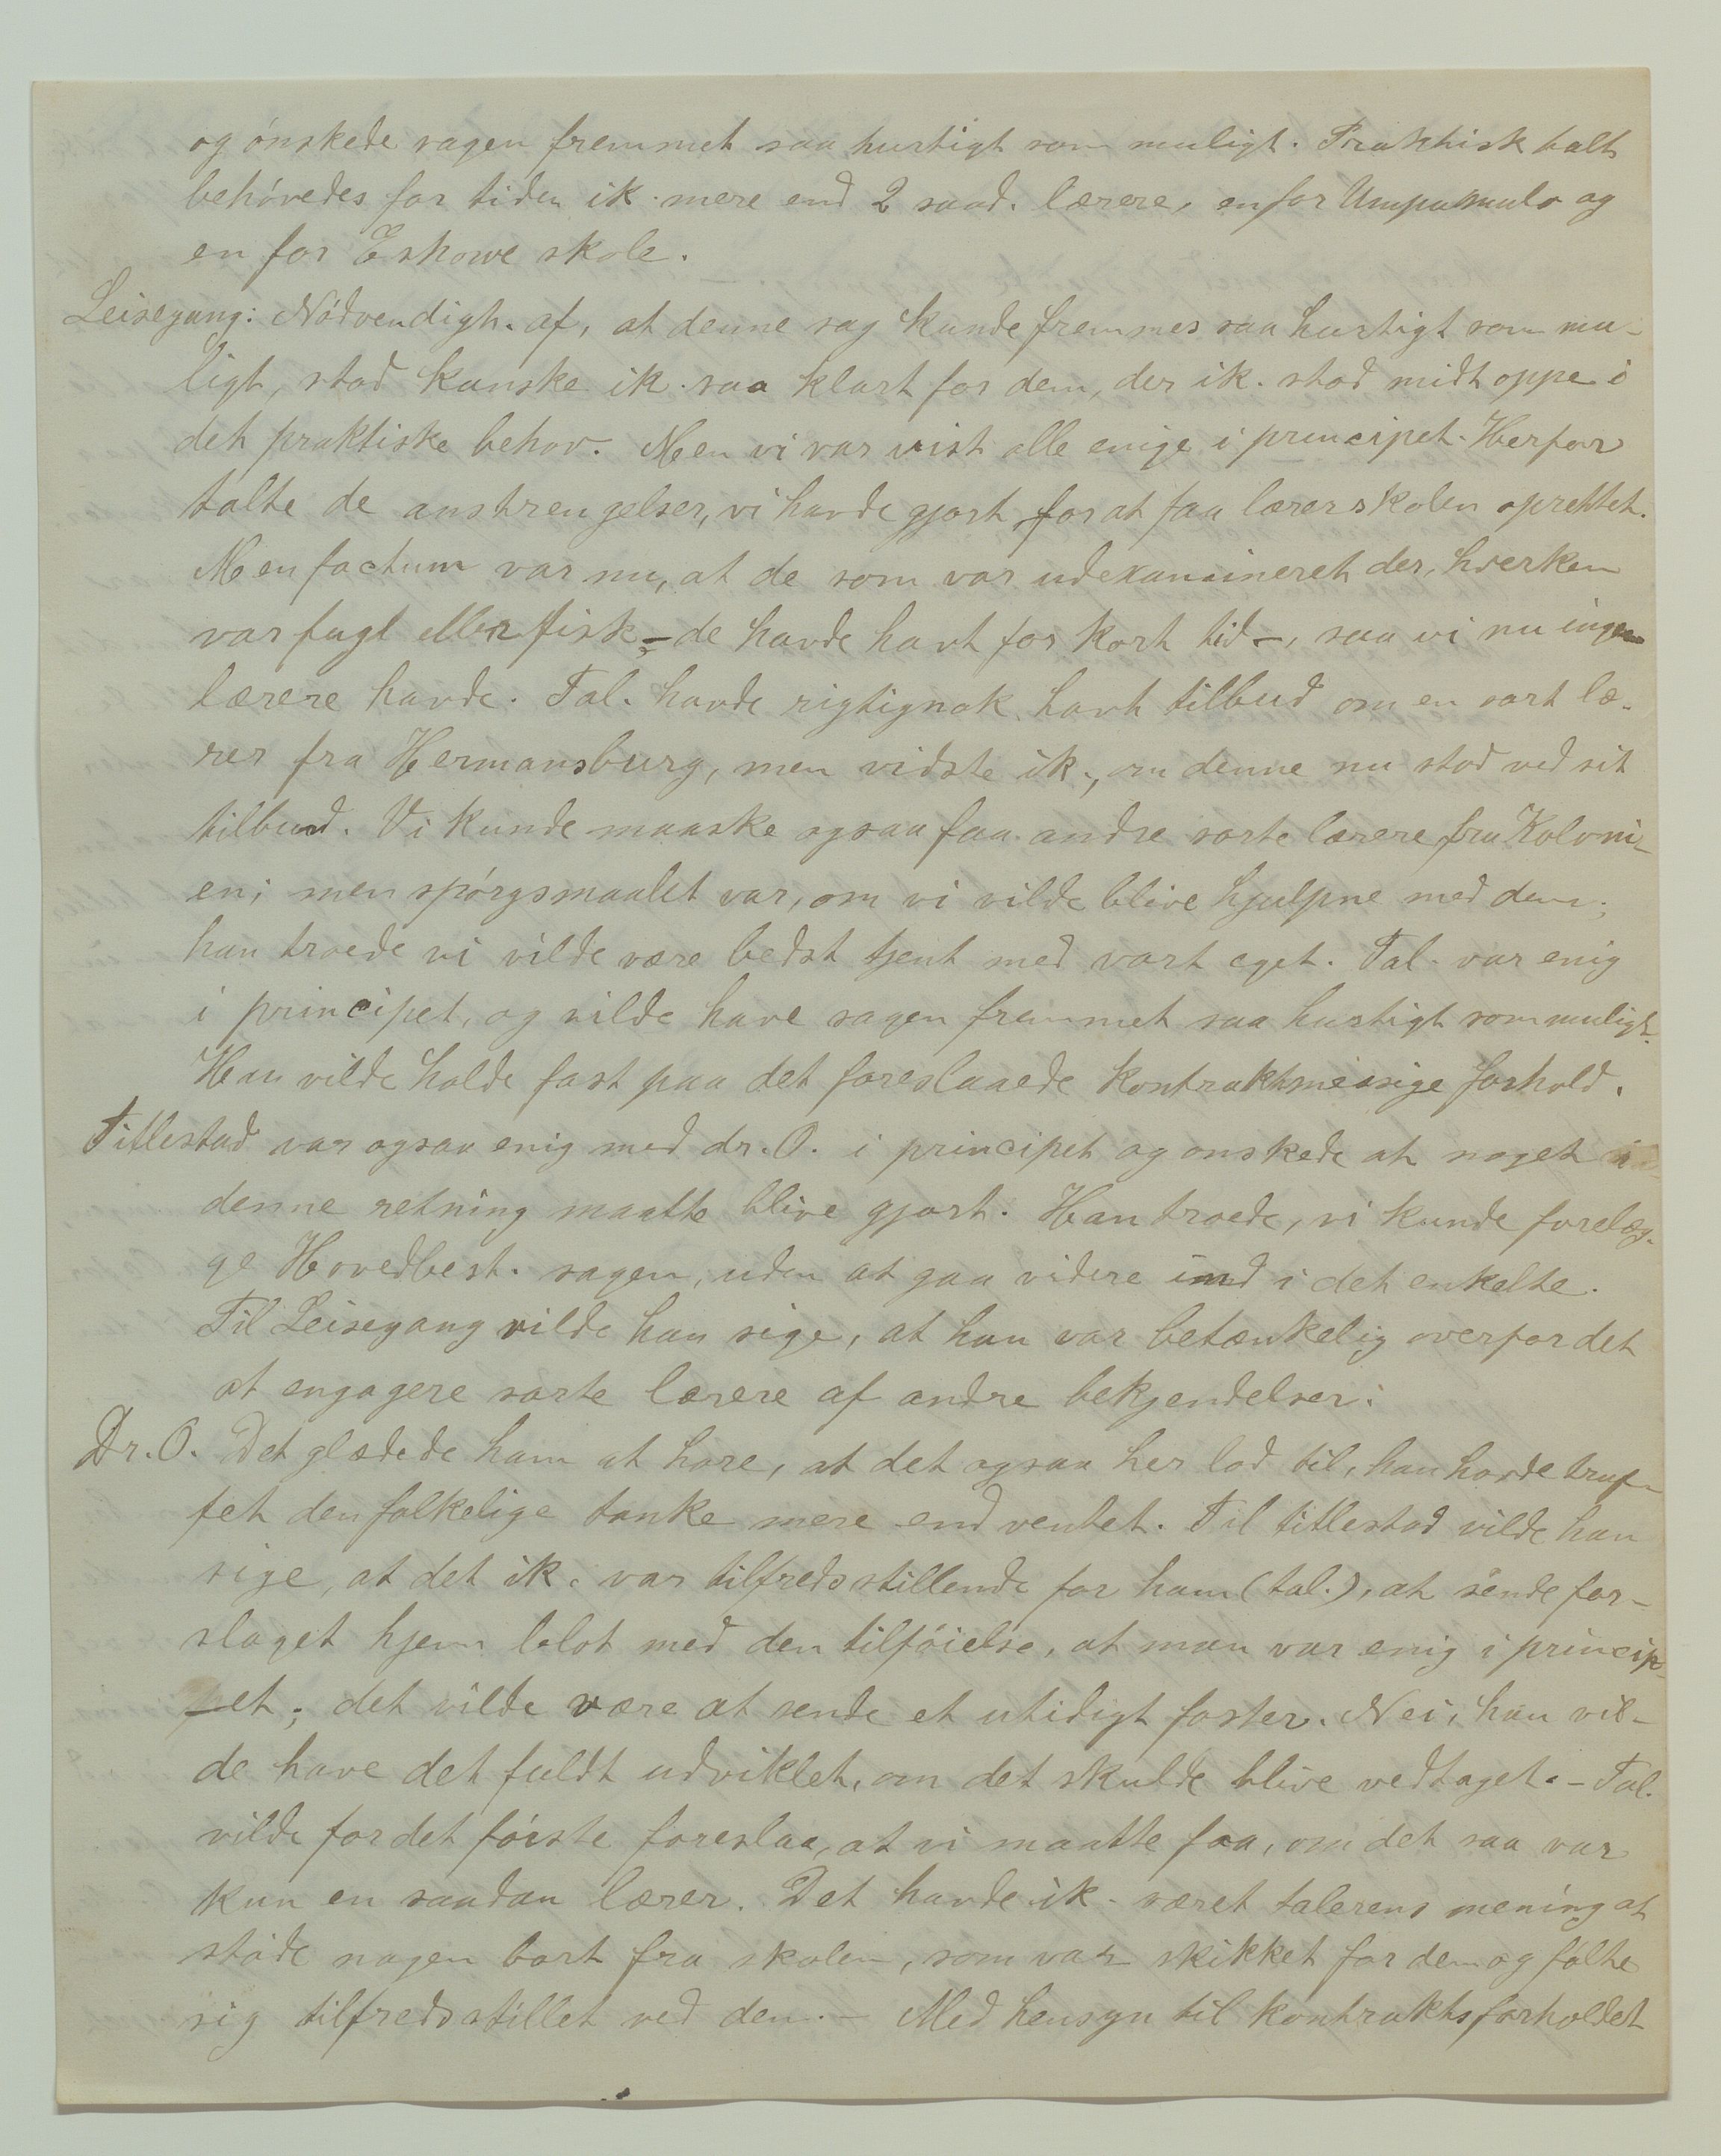 og ónskede sagen fremmet saa hurtigt som muligt. Praktisk talt
behóvedes for tiden ik. mere end 2 saad. lærere, en for Umpumulo og
en for Eshowe skole.
Leisegang: Nódvendigh. af, at denne sag kunde fremmes saa hurtigt som mu-
ligt, stod kanske ik. saa klart for dem, der ik. stod midt oppe i
det praktiske behov. Men vi var vist alle enige i princípet. Herfor
talte de anstrengelser, vi havde gjort for at faa lærerskolen oprettet.
Men factum var nu, at de som var udexamineret der, hverken
var fugl eller fisk, - de havde havt for kort tid -, saa vi nu ingen
lærere havde. Tal. havde rigtignok havt tilbud om en sort læ-
rer fra Hermansburg, men vidste ik., om denne nu stod ved sit
tilbud. Vi kunde maaske ogsaa faa andre sorte lærere fra Koloni-
en; men spórgsmaalet var, om vi vilde blive hjulpne med dem;
han troede vi vilde være bedst tjent med vort eget. Tal. var enig
i principet, og vilde have sagen fremmet saa hurtigt som muligt.
Han vilde holde fast paa det foreslaaede kontraktmessige forhold.
Titlestad var ogsaa enig med dr. O. i principet og onskede at noget i
denne retning maatte blive gjort. Han troede, vi kunde forelæg-
ge Hovedbest. sagen, uden at gaa videre ind i det enkelte.
Til Leisegang vilde han sige, at han var betænkelig overfor det
at engagere sorte lærere af andre bekjendelser.
Dr. O. Det glædede ham at hore, at det ogsaa her lod til, han havde truf-
fet den folkelige tanke mere end ventet. Til titlestad vilde han
sige, at det ik. var tilfredsstillende for ham (tal.), at sende for-
slaget hjem blot med den tilfóielse, at man var enig i princip-
pet; det vilde være at sende et utidigt foster. Nei, han vil-
de have det fuldt udviklet, om det skulde blive vedtaget. - Tal.
vilde for det fórste foreslaa, at vi maatte faa, om det saa var
kun en saadan lærer. Det havde ik. været talerens mening at
stóde nogen bort fra skolen, som var skikket for den og fólte
sig tilfredsstillet ved den. - Med hensyn til kontraktsforholdet